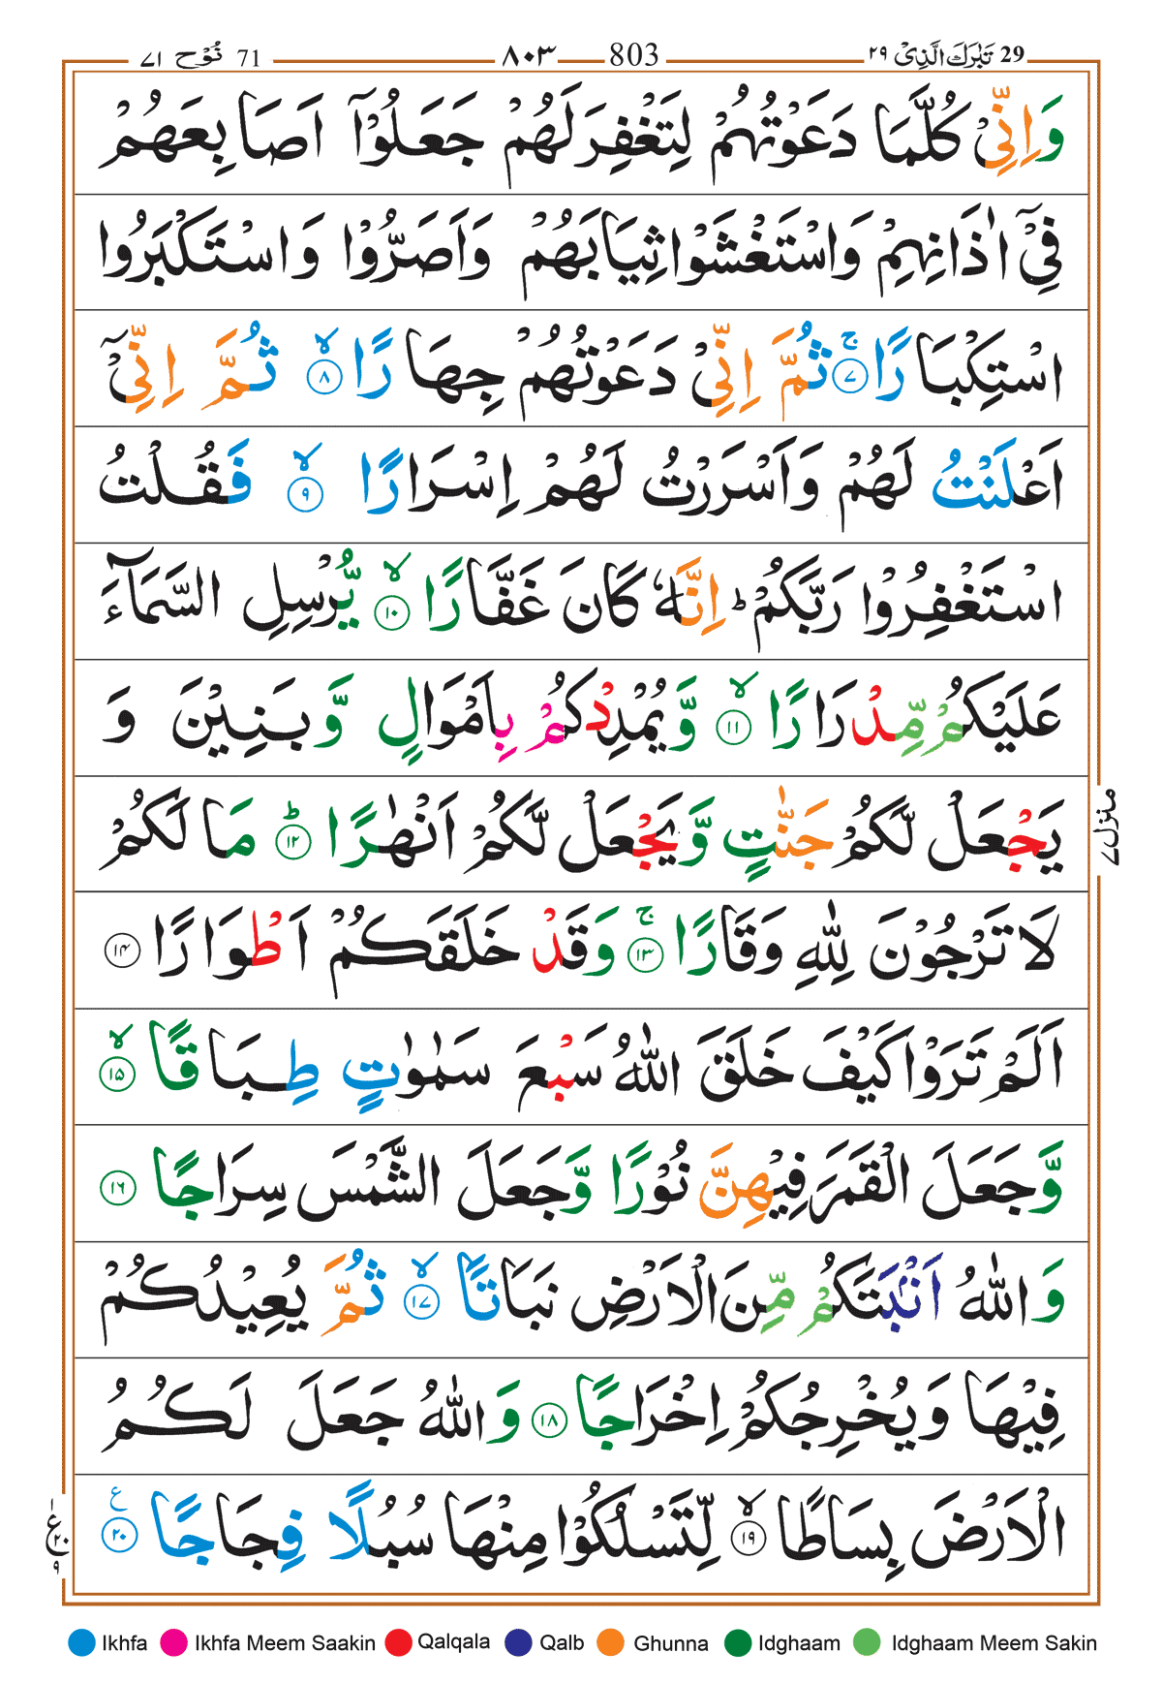 29 تَبٰرَكَ الَّذِیْ ٢٩ 803 ٨٠٣ 71 نُوْح ٧١
وَاِنِّیْ كُلَّمَا دَعَوْتُهُمْ لِتَغْفِرَ لَهُمْ جَعَلُوْۤا اَصَابِعَهُمْ
فِیْۤ اٰذَانِهِمْ وَاسْتَغْشَوْا ثِیَابَهُمْ وَاَصَرُّوْا وَاسْتَكْبَرُوا
اسْتِكْبَارًا ۚ ٧ ثُمَّ اِنِّیْ دَعَوْتُهُمْ جِهَارًا ۙ ٨ ثُمَّ اِنِّیْۤ
اَعْلَنْتُ لَهُمْ وَاَسْرَرْتُ لَهُمْ اِسْرَارًا ۙ ٩ فَقُلْتُ
اسْتَغْفِرُوْا رَبَّكُمْ ؕ اِنَّهٗ كَانَ غَفَّارًا ۙ ١٠ یُّرْسِلِ السَّمَآءَ
عَلَیْكُمْ مِّدْرَارًا ۙ ١١ وَّیُمْدِدْكُمْ بِاَمْوَالٍ وَّبَنِیْنَ وَ
یَجْعَلْ لَّكُمْ جَنّٰتٍ وَّیَجْعَلْ لَّكُمْ اَنْهٰرًا ؕ ١٢ مَا لَكُمْ
لَا تَرْجُوْنَ لِلّٰهِ وَقَارًا ۚ ١٣ وَقَدْ خَلَقَكُمْ اَطْوَارًا ١٤
اَلَمْ تَرَوْا كَیْفَ خَلَقَ اللّٰهُ سَبْعَ سَمٰوٰتٍ طِبَاقًا ۙ ١٥
وَّجَعَلَ الْقَمَرَ فِیْهِنَّ نُوْرًا وَّجَعَلَ الشَّمْسَ سِرَاجًا ١٦
وَاللّٰهُ اَنْۢبَتَكُمْ مِّنَ الْاَرْضِ نَبَاتًا ۙ ١٧ ثُمَّ یُعِیْدُكُمْ
فِیْهَا وَیُخْرِجُكُمْ اِخْرَاجًا ١٨ وَاللّٰهُ جَعَلَ لَكُمُ
الْاَرْضَ بِسَاطًا ۙ ١٩ لِّتَسْلُكُوْا مِنْهَا سُبُلًا فِجَاجًا ٢٠ ع
منزل ٧
١ ع ٢٠ ٩
Ikhfa Ikhfa Meem Saakin Qalqala Qalb Ghunna Idghaam Idghaam Meem Sakin